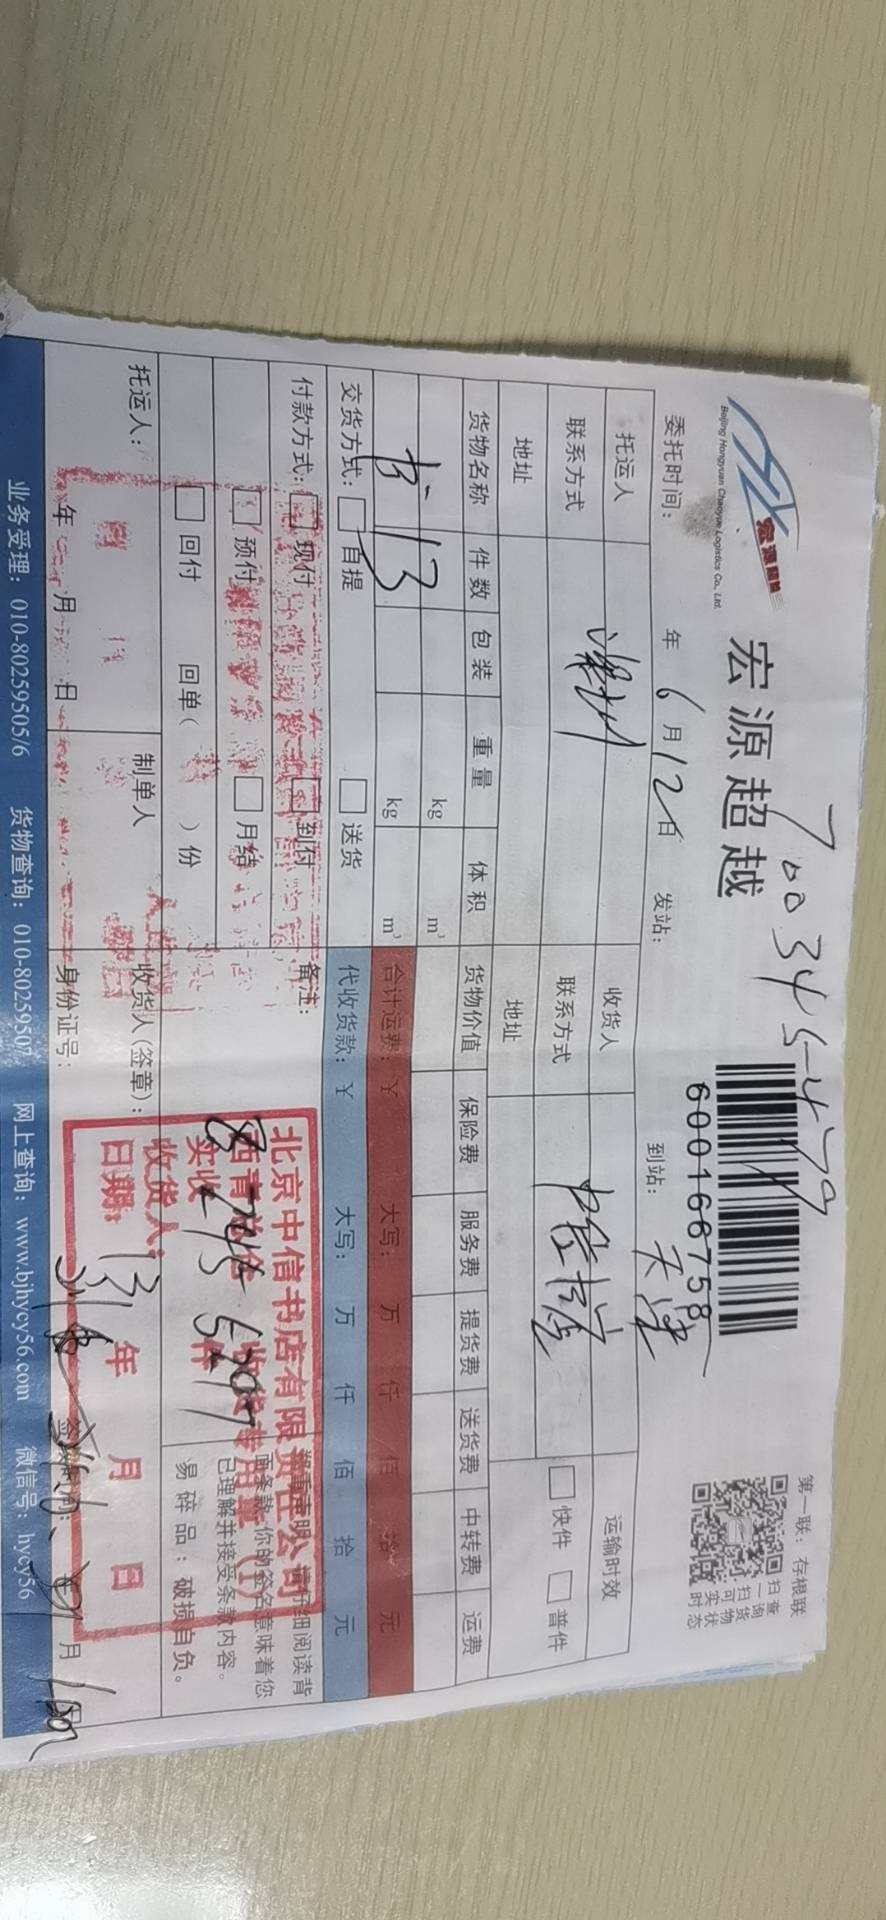 宏源超越
Beijing Hongyuan Chaoyue Logistics Co., Ltd.
宏源超越
6001667758
第一联：存根联
扫查
一询
扫货
可物
实状
时态
委托时间： 年 6 月 12 日 发站： 到站： 天津
托运人 收货人 运输时效
联系方式 联系方式 中信书店 快件 普件
地址 地址
货物名称 件数 包装 重量 体积 货物价值 保险费 服务费 提货费 送货费 中转费 运费
书 13 kg m³
kg m³ 合计运费：￥ 大写： 万 仟 佰 拾 元
交货方式： 自提 送货 代收货款：￥ 大写： 万 仟 佰 拾 元
付款方式： 现付 到付 备注：
预付 月结
回付 回单（ ）份
细阅读背
面条款，你的签名意味着您
已理解并接受条款内容。
易碎品：破损自负。
北京中信书店有限责任公司
收货专用章
实收 件
收货人：
日期： 年 月 日
托运人： 制单人 收货人（签章）：
年 月 日 身份证号： 月
业务受理：010-80259505/6 货物查询：010-80259507 网上查询：www.bjhycy56.com 微信号：hycy56